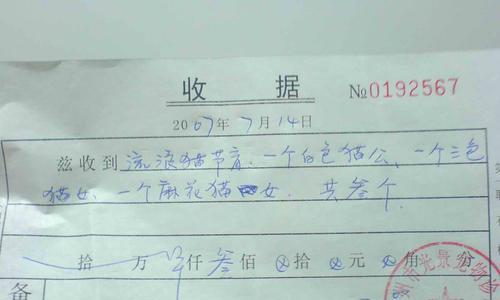 收 据 №0192567
2007年7月14日
兹收到 流浪猫节育、一个白色猫公、一个三色
猫女、一个麻花猫女. 共叁个.
拾 万 仟叁佰 拾 元 角 分
备